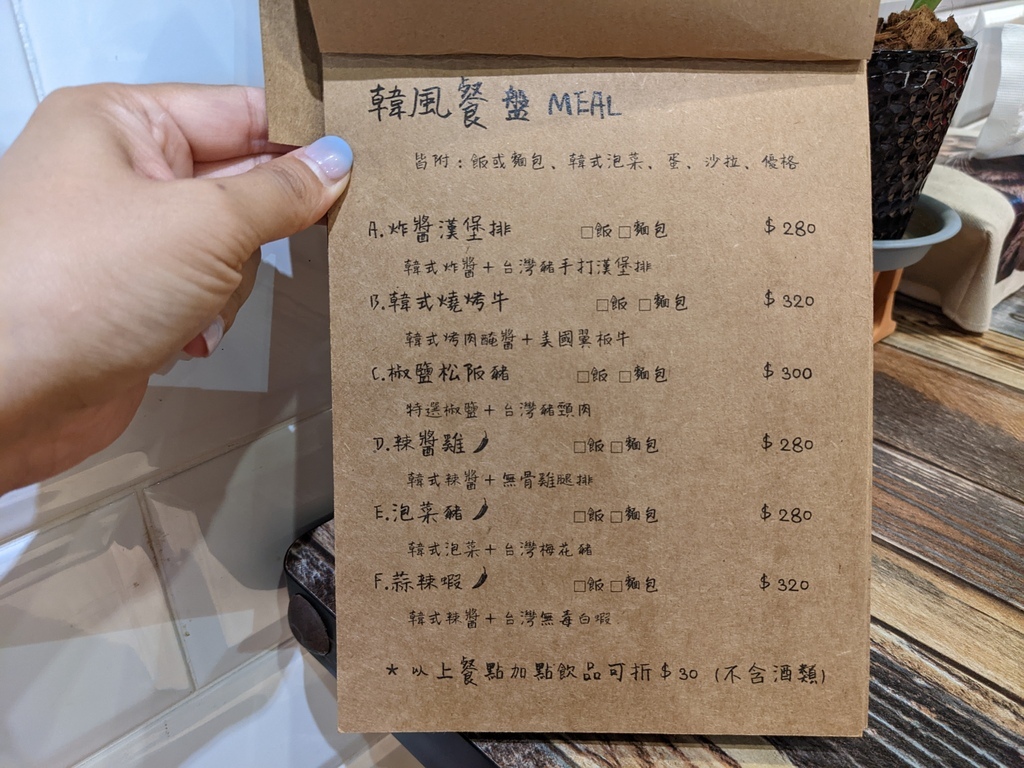 韓風餐盤 MEAL
皆附：飯或麵包、韓式泡菜、蛋、沙拉、優格
A.炸醬漢堡排 □飯 □麵包 $280
韓式炸醬+台灣豬手打漢堡排
B.韓式燒烤牛 □飯 □麵包 $320
韓式烤肉醃醬+美國翼板牛
C.椒鹽松阪豬 □飯 □麵包 $300
特選椒鹽+台灣豬頸肉
D.辣醬雞 □飯 □麵包 $280
韓式辣醬+無骨雞腿排
E.泡菜豬 □飯 □麵包 $280
韓式泡菜+台灣梅花豬
F.蒜辣蝦 □飯 □麵包 $320
韓式辣醬+台灣無毒白蝦
* 以上餐點加點飲品可折$30 (不含酒類)